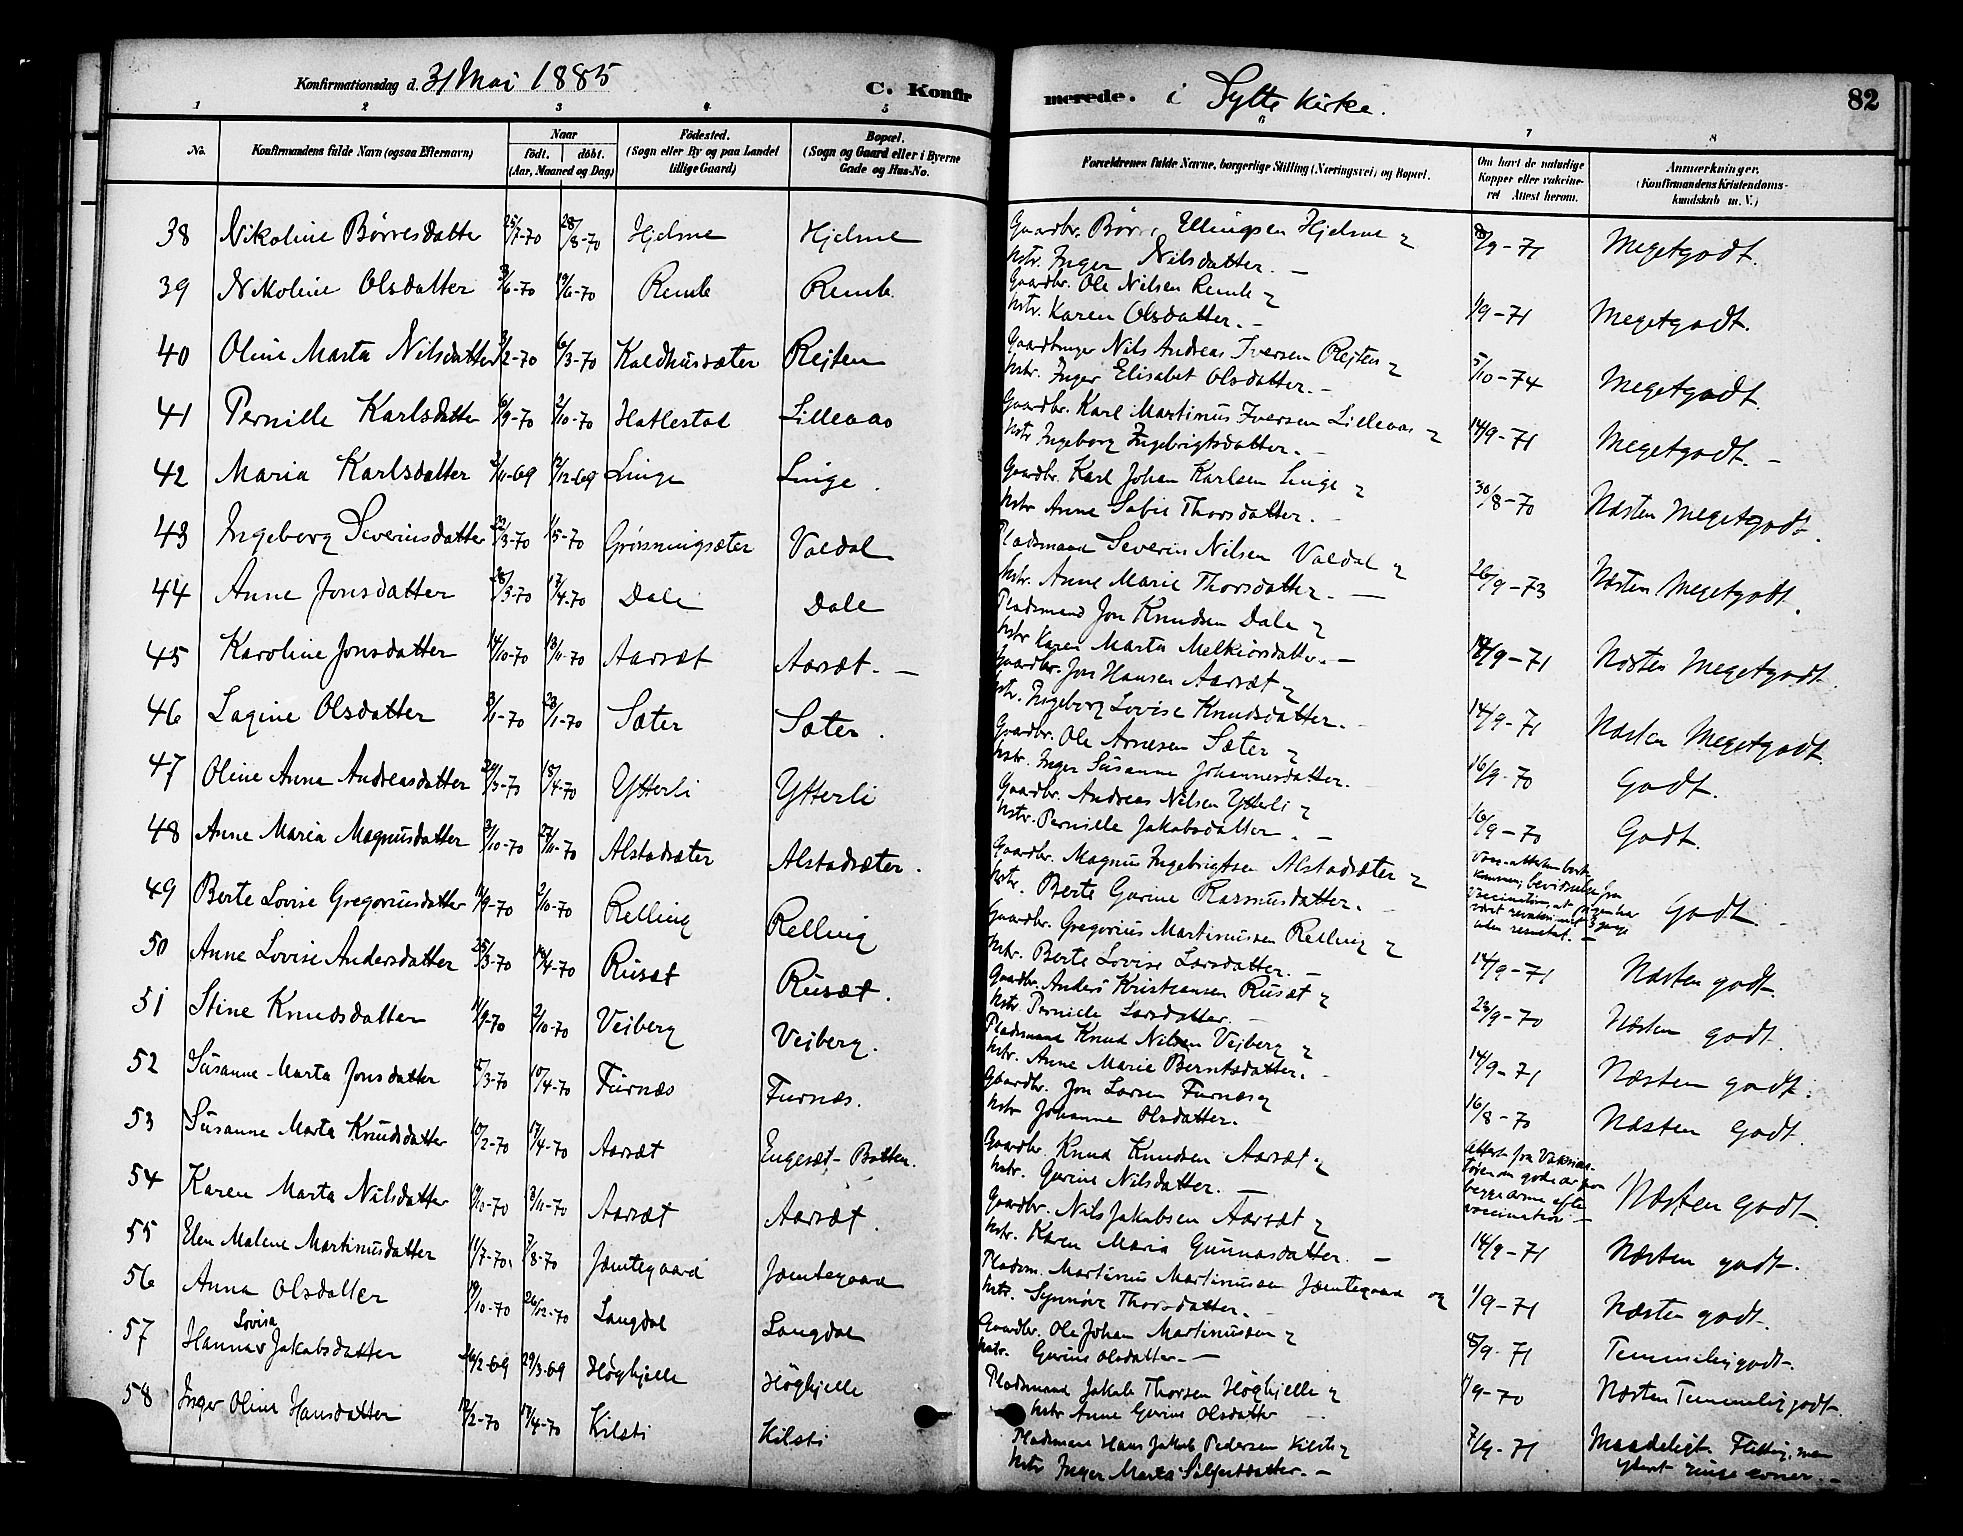 Konfirmationsdag d. 31 Mai 1885
C. Konfirmerede. i Sylte Kirke.
82
1 2 3 4 5 6 7 8
No.
Konfirmandens fulde Navn (ogsaa Efternavn)
Naar
født. døbt.
(Aar, Maaned og Dag)
Fødested.
(Sogn eller By og paa Landet tillige Gaard)
Bopæl.
(Sogn og Gaard eller i Byerne Gade og Hus-No.
Forældrenes fulde Navne, borgerlige Stilling (Næringsvei) og Bopæl.
Om havt de naturlige Kopper eller vakcineret Attest herom.
Anmærkninger.
(Konfirmandens Kristendomskundskab m. V.)
38 Nikoline Børresdatter 25/7-70 28/8-70 Hjelme Hjelme Gaardbr. Børre Ellingsen Hjelme & Hstr. Inger Nilsdatter. - 8/9-71 Megetgodt.
39 Nikoline Olsdatter 3/6-70 19/6-70 Remb Remb. Gaardbr. Ole Nilsen Remb & Hstr. Karen Olsdatter. - 1/9-71 Megetgodt.
40 Oline Marta Nilsdatter 3/2-70 6/3-70 Kaldhussæter Rejten Gaardbruger Nils Andreas Iversen Rejten & Hstr. Inger Elisabet Olsdatter. - 5/10-74 Megetgodt.
41 Pernille Karlsdatter 6/9-70 2/10-70 Hatlestad Lilleaas Gaardbr. Karl Martinus Iversen Lilleaas & Hstr Ingeborg Ingebrigtsdatter. - 14/9-71 Megetgodt. -
42 Maria Karlsdatter 2/11-69 12/12-69 Linge Linge. Gaardbr. Karl Johan Karlsen Linge & Hstr Anne Sabie Thorsdatter. - 30/8-70 Næsten Megetgodt.
43 Ingeborg Severinsdatter 22/3-70 1/5-70 Grønningsæter Valdal Pladsmand Severin Nilsen Valdal & Hstr. Anne Marie Thorsdatter. - 26/9-73 Næsten Megetgodt.
44 Anne Jonsdatter 28/3-70 17/4-70 Dale Dale Pladsmand Jon Knudsen Dale & Hstr Karen Marta Melkiorsdatter. - 14/9-71 Næsten Megetgodt.
45 Karoline Jonsdatter 14/10-70 13/11-70 Aarsæt Aarsæt. - Gaardbr. Jon Hansen Aarsæt & Hstr. Ingeborg Lovise Knudsdatter. 14/9-71 Næsten Megetgodt
46 Lagine Olsdatter 3/1-70 23/1-70 Sæter Sæter. Gaardbr. Ole Arnesen Sæter & Hstr. Inger Susanne Johannesdatter. 16/9-70 Godt.
47 Oline Anne Andreasdatter 24/3-70 15/4-70 Ytterli Ytterli Gaardbr. Andreas Nilsen Ytterli & Hstr. Pernille Jakobsdatter. - 16/9-70 Godt.
48 Anne Maria Magnusdatter 3/10-70 27/11-70 Alstadsæter Alstadsæter. Gaardbr. Magnus Ingebrigtsen Alstadsæter & Hstr. Berte Gurine Rasmusdatter. Godt -
49 Berte Lovise Gregoriusdatter 11/9-70 2/10-70 Relling Relling Gaardbr. Gregorius Martinussen Relling & Hstr. Berte Lovise Larsdatter. - 14/9-71 Næsten godt.
50 Anne Lovise Andersdatter 25/3-70 14/4-70 Rusæt Rusæt. Gaardbr. Anders Kristiansen Rusæt & Hstr Pernille Larsdatter. - 23/9-70 Næsten godt.
51 Stine Knudsdatter 11/9-70 2/10-70 Veiberg Veiberg. Pladsmand Knud Nilsen Veiberg & Hstr. Anne Marie Berntsdatter. - 14/9-71 Næsten godt.
52 Susanne Marta Jonsdatter 15/3-70 10/4-70 Furnæs Furnæs. Gaardbr. Jon Larsen Furnæs & Hstr Johanne Olsdatter. 16/8-70 Næsten godt.
53 Susanne Marta Knudsdatter 10/2-70 17/4-70 Aarsæt Engesæt-Botten. Gaardbr. Knud Knudsen Aarsæt & Hstr. Gurine Nilsdatter. - Næsten godt.
54 Karen Marta Nilsdatter 9/10-70 13/11-70 Aarsæt Aarsæt. Gaardbr. Nils Jakobsen Aarsæt & Hstr. Karen Maria Gunnasdatter. - 14/9-71 Næsten godt.
55 Elen Malene Martinusdatter 11/7-70. 7/8-70 Jemtegaard Jemtegaard Pladsm. Martinus Martinussen Jemtegaard og Hstr. Synnøve Thorsdatter. - 1/9-71 Næsten godt.
56 Anna Olsdatter 19/10-70 26/12-70 Langdal Langdal Gaardbr. Ole Johan Martinussen & Hstr. Gurine Olsdatter. - 8/9-71 Temmelig godt.
57 Hanna Lovisa Jakobsdatter 26/2-69 29/3-69 Høghjelle Høghjelle Pladsmand Jakob Thorsen Høghjelle & Hstr Anne Gurine Olsdatter 1/9-70 Næsten Temmelig godt.
58 Inger Oline Hansdatter 12/2-70 17/4-70 Kilsti Kilsti Pladsmand Hans Jakob Pedersen Kilsti & Hstr Inger Marta Siljestdatter. - 7/9-71 Maadeligt. Flittig, men yderst ringe evner. -